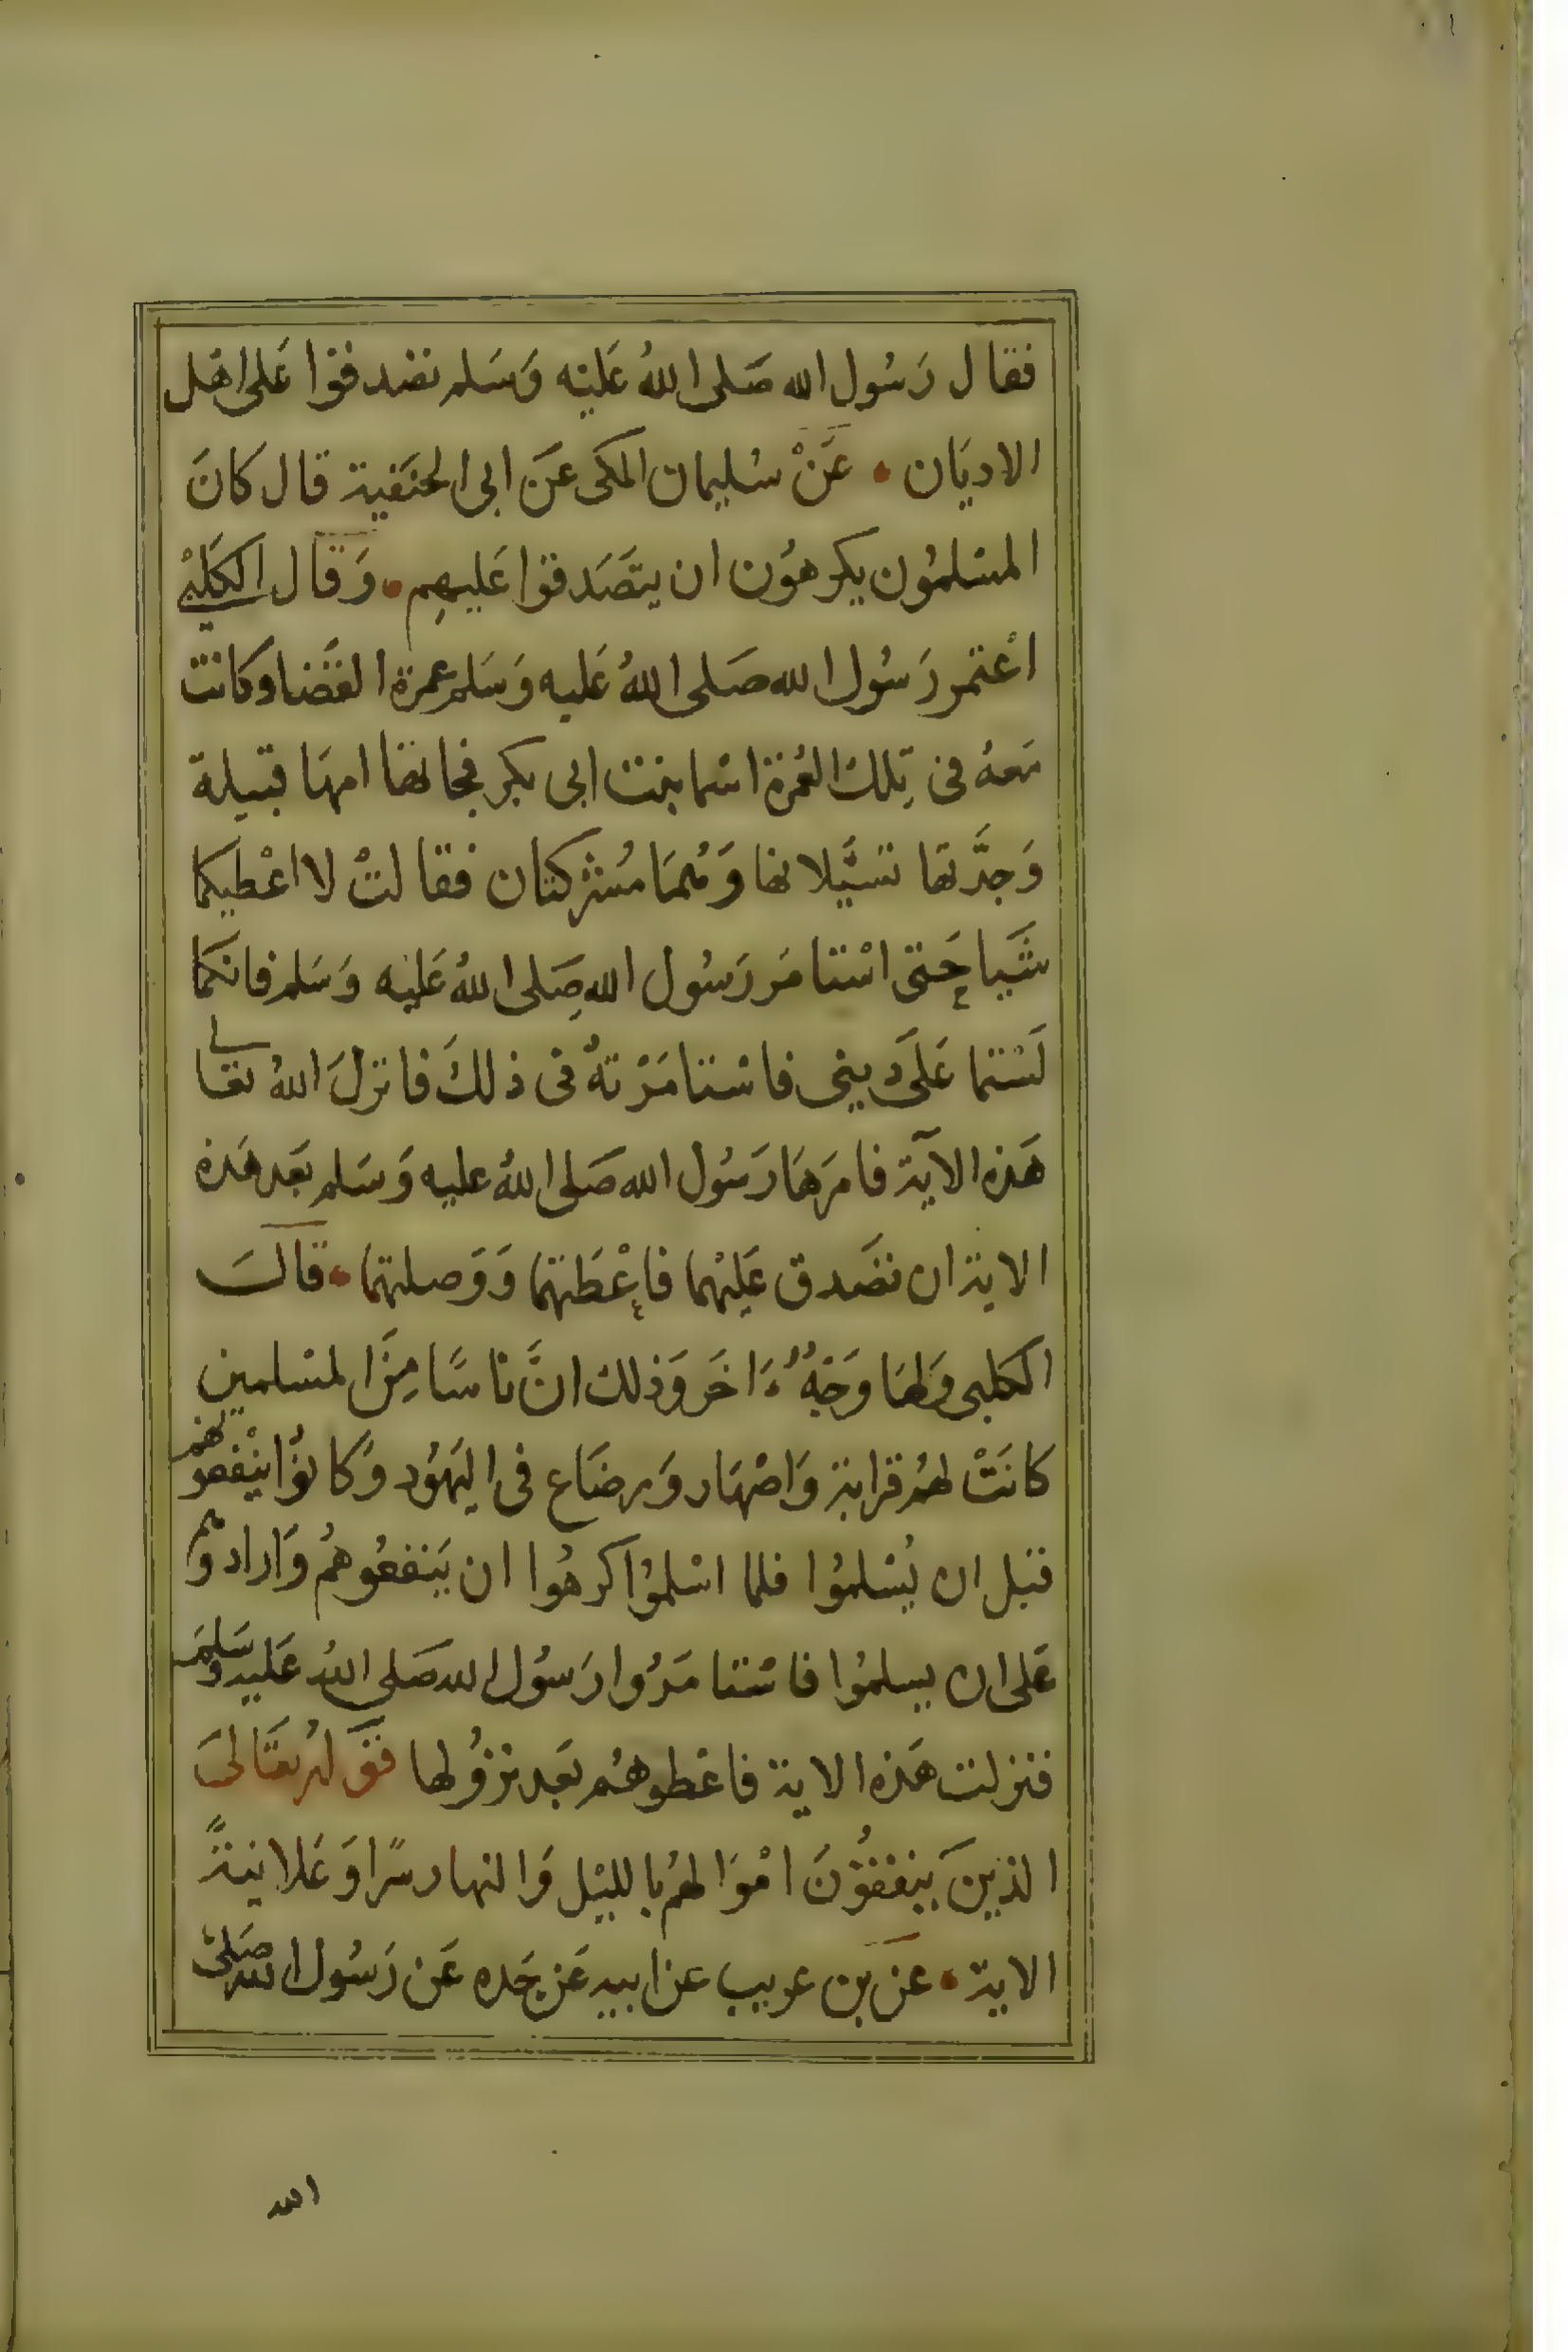 فقال رَسُول الله صَلى اللهُ عَليْه وَسَلم تصَدقوا عَلى اهْل
الاديَان • عَنْ سُليمان المكى عَن ابى الحنَفية قال كانَ
المسْلمُون يكرهوُن ان يتصَدقوا عَليهِم • وَقال الكَلبْي
اعْتمر رَسُول الله صَلى اللهُ عَليه وَسَلم عمرة القضَا وكانت
مَعهُ فى تِلك العُمرة اسْما بنت ابى بكر فجاتها امهَا قتيلة
وَجدَّتها تسَيَّلانها وَهُمَا مُشْركتان فقالتْ لا اعْطيكما
شَيا حَتى اسْتامَر رَسُول الله صَلى اللهُ عَليْه وَسَلم فانكما
لَسْتما عَلَى دينى فاسْتامَرْتهُ فى ذلكَ فانزلَ اللهُ تعَالى
هَذه الآية فامَرهَا رَسُول الله صَلى اللهُ عليه وَسَلم بعَد هَذه
الاية ان تصَدق عَليْهما فاعْطَتهما وَوَصلتهما • قالـَـ
الكلبى وَلهَا وَجْهُ ءَاخَر وَذلك انَّ ناسًا مِنَ المسْلمين
كانَتْ لهُم قرابة وَاصْهَار وَرضَاع فى اليَهوُد وَكانُوْا ينْفعوُنهم
قبل ان يُسْلمُوا فلما اسْلمُوْا كرهُوا ان يَنفعُوهُمْ وَارادوُهم
عَلى ان يسلمُوا فاسْتامَرُوا رَسُول الله صَلى اللهُ عَليه وَسَلمَ
فنزلت هَذه الاية فاعْطوهُم بعَد نزوُلها قوَله تعَالىَ
الذيَن ينفقوُنَ امْوَالهمُ بالليْل وَالنهار سرًا وَعَلانيةً
الاية • عن بن عريب عن ابيه عَن جَده عَن رَسُول الله صَلىْ
الله